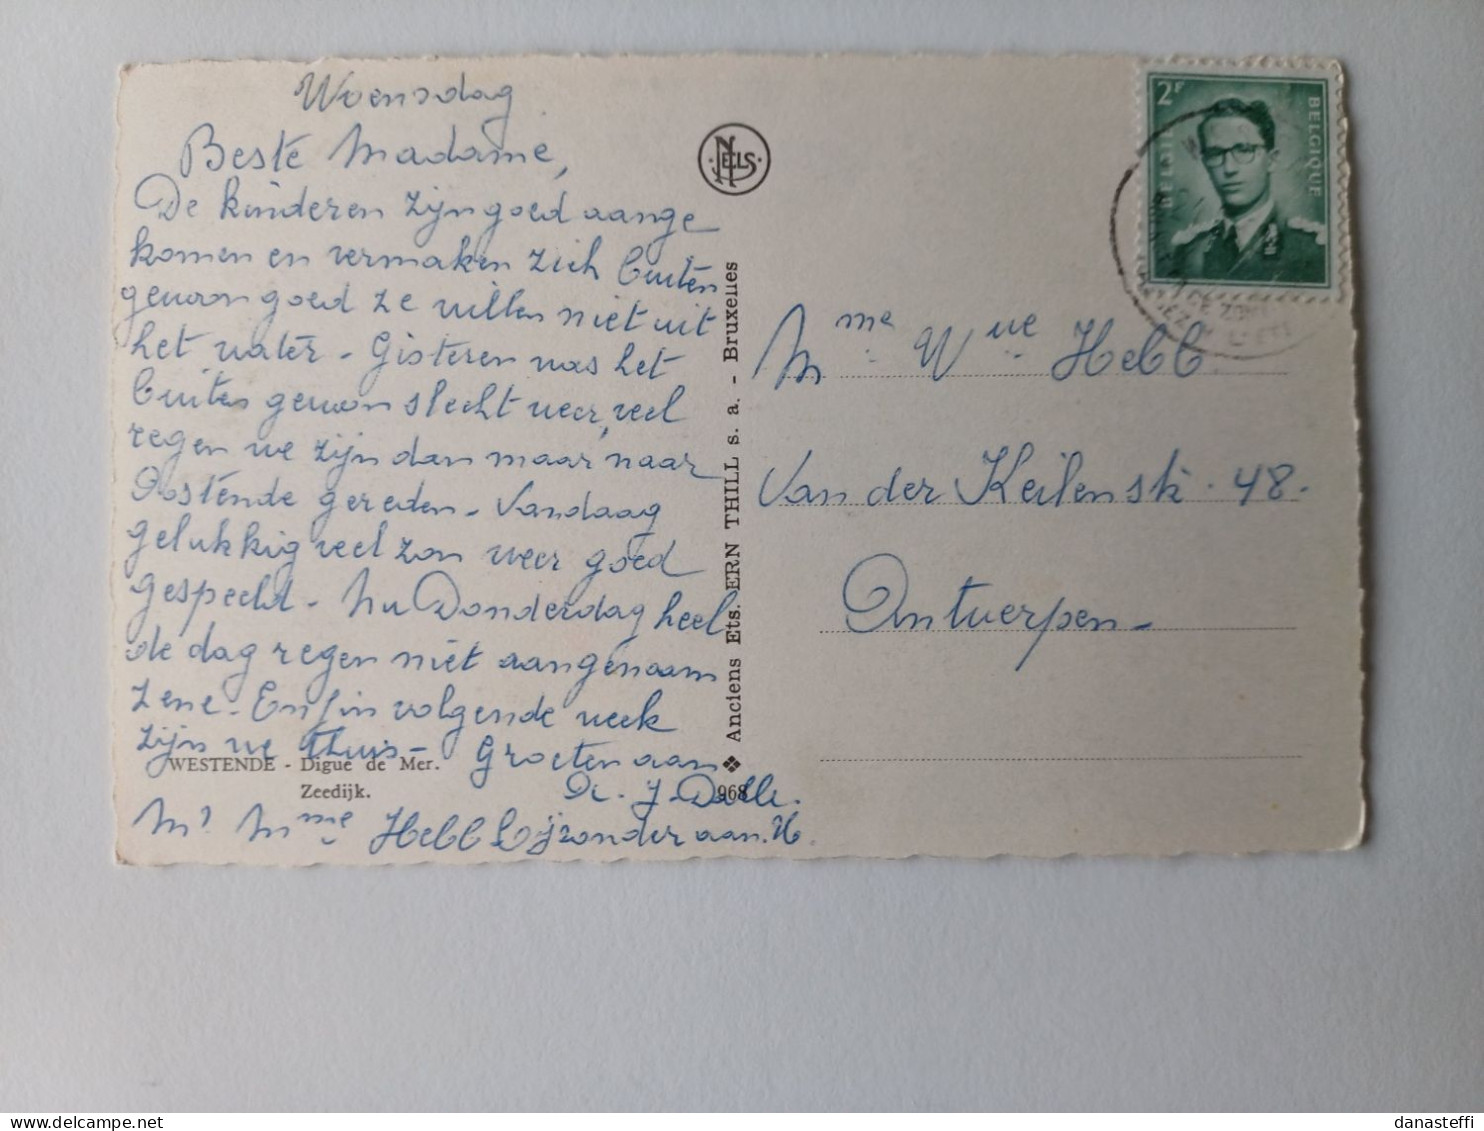 Woensdag
Beste Madame,
De kinderen zijn goed aange
komen en vermaken zich buiten
gewoon goed ze willen niet uit
het water - Gisteren was het
buiten gewoon slecht weer, veel
regen we zijn dan maar naar
Oostende gereden - Vandaag
gelukkig veel zon weer goed
gespeeld - Nu Donderdag heel
de dag regen niet aangenaam
zene - Enfin volgende week
zijn we thuis - Groeten aan
WESTENDE - Digue de Mer.
Zeedijk.
Mr Mme Hebb bijzonder aan U.
NELS
❖ Anciens Ets. ERN THILL s. a. - Bruxelles
968
2F
BELGIË
BELGIQUE
Mme Wwe Hebb
Van der Keilenstr. 48.
Antwerpen -
danasteffi
delcampe.net